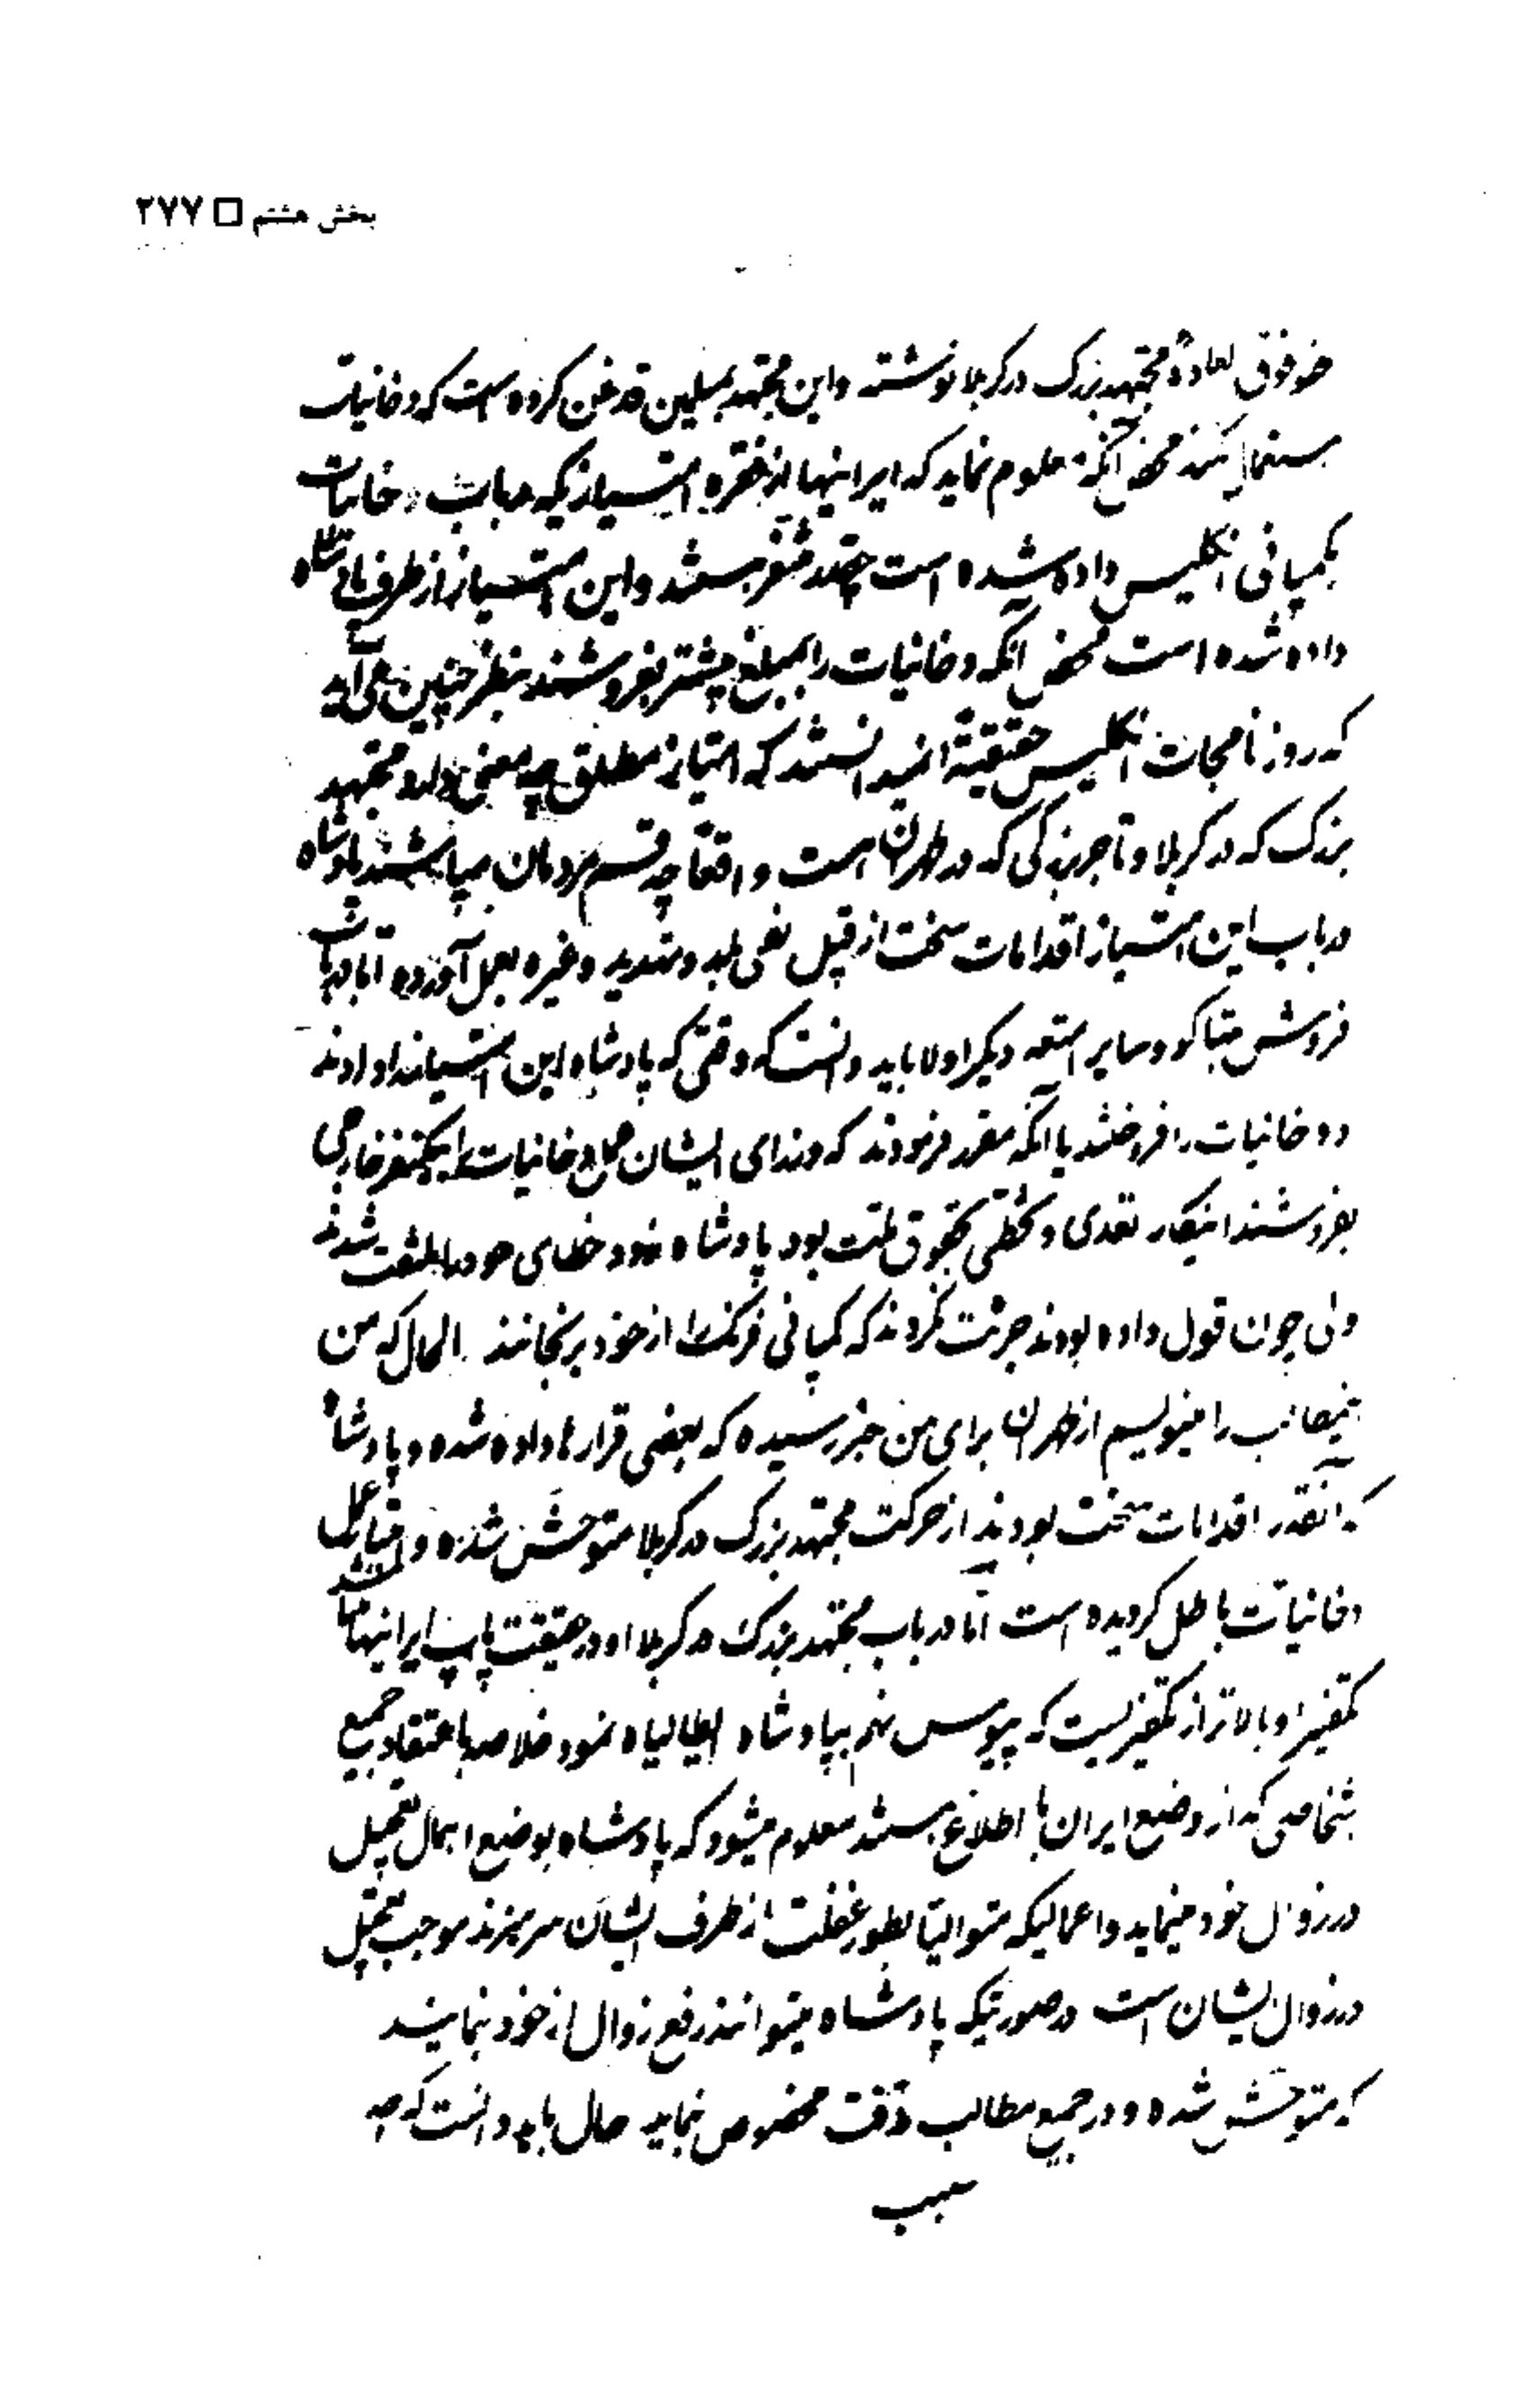 بخش هشتم □ ۲۷۷
فوق العاده مجتهد بزرک در کربلا نوشته و این مجتهد بمسلمین قدغن کرده است که دخانیات
استعمال نکنند محض آنکه معلوم نماید که ایرانیها از فقره امتیازیکه در باب دخانیات
بکمپانی انکلیس داده شده است چقدر متنفر هستند و این امتیاز از طرف پادشاه
داده شده است محض آنکه دخانیات را بمبلغ بیشتر بفروشند بنظر چنین می آید
که روزنامجات انکلیس حقیقة نمیدانستند که امتیاز مطلق چه معنی دارد و مجتهد
بزرک که در کربلا و تاجر بزرکی که در طهران است واقعا چه قسم مردمان میباشند پادشاه
در باب این امتیاز اقدامات سخت از قبیل نفی بلد و تهدید و غیره بعمل آورده اما در باب
فروش تنباکو و سایر امتعه دیکر اولا باید دانست که وقتی که پادشاه این امتیاز را دادند
و دخانیات را فروختند با آنکه مقرر فرمودند که وزرای ایشان دخانیات را بیکنفر خارجی
بفروشند اینکار تعدی و تخطی بحقوق ملت بود پادشاه خطای خود را ملتفت شدند
ولی چون قول داده بودند جرئت نکردند که کمپانی فرنک را از خود برنجانند الحال که من
اینمطالب را مینویسم از طهران برای من خبر رسیده که بعضی قرارها داده شده و پادشاه
که آنقدر اقدامات سخت بودند از حرکت مجتهد بزرک در کربلا متوحش شده و امتیاز
دخانیات باطل کردیده است اما در باب مجتهد بزرک در کربلا او در حقیقت پاپ ایرانیها است
تکفیر او بالاتر از تکفیریست که پیوس نهم بپادشاه ایطالیا نمود خلاصه باعتقاد جمیع
اشخاصی که از وضع ایران با اطلاع هستند معلوم میشود که پادشاه بوضع اهمال تعجیل
در زوال خود مینماید و اعمالیکه متوالیا بطور غفلت از طرف ایشان سر میزند موجب تعجیل
در زوال ایشان است در صورتیکه پادشاه میتوانند رفع زوال از خود بنمایند
که متوحش شده و در جمیع مطالب دقت مخصوص نماید حال باید دانست که چه
سبب